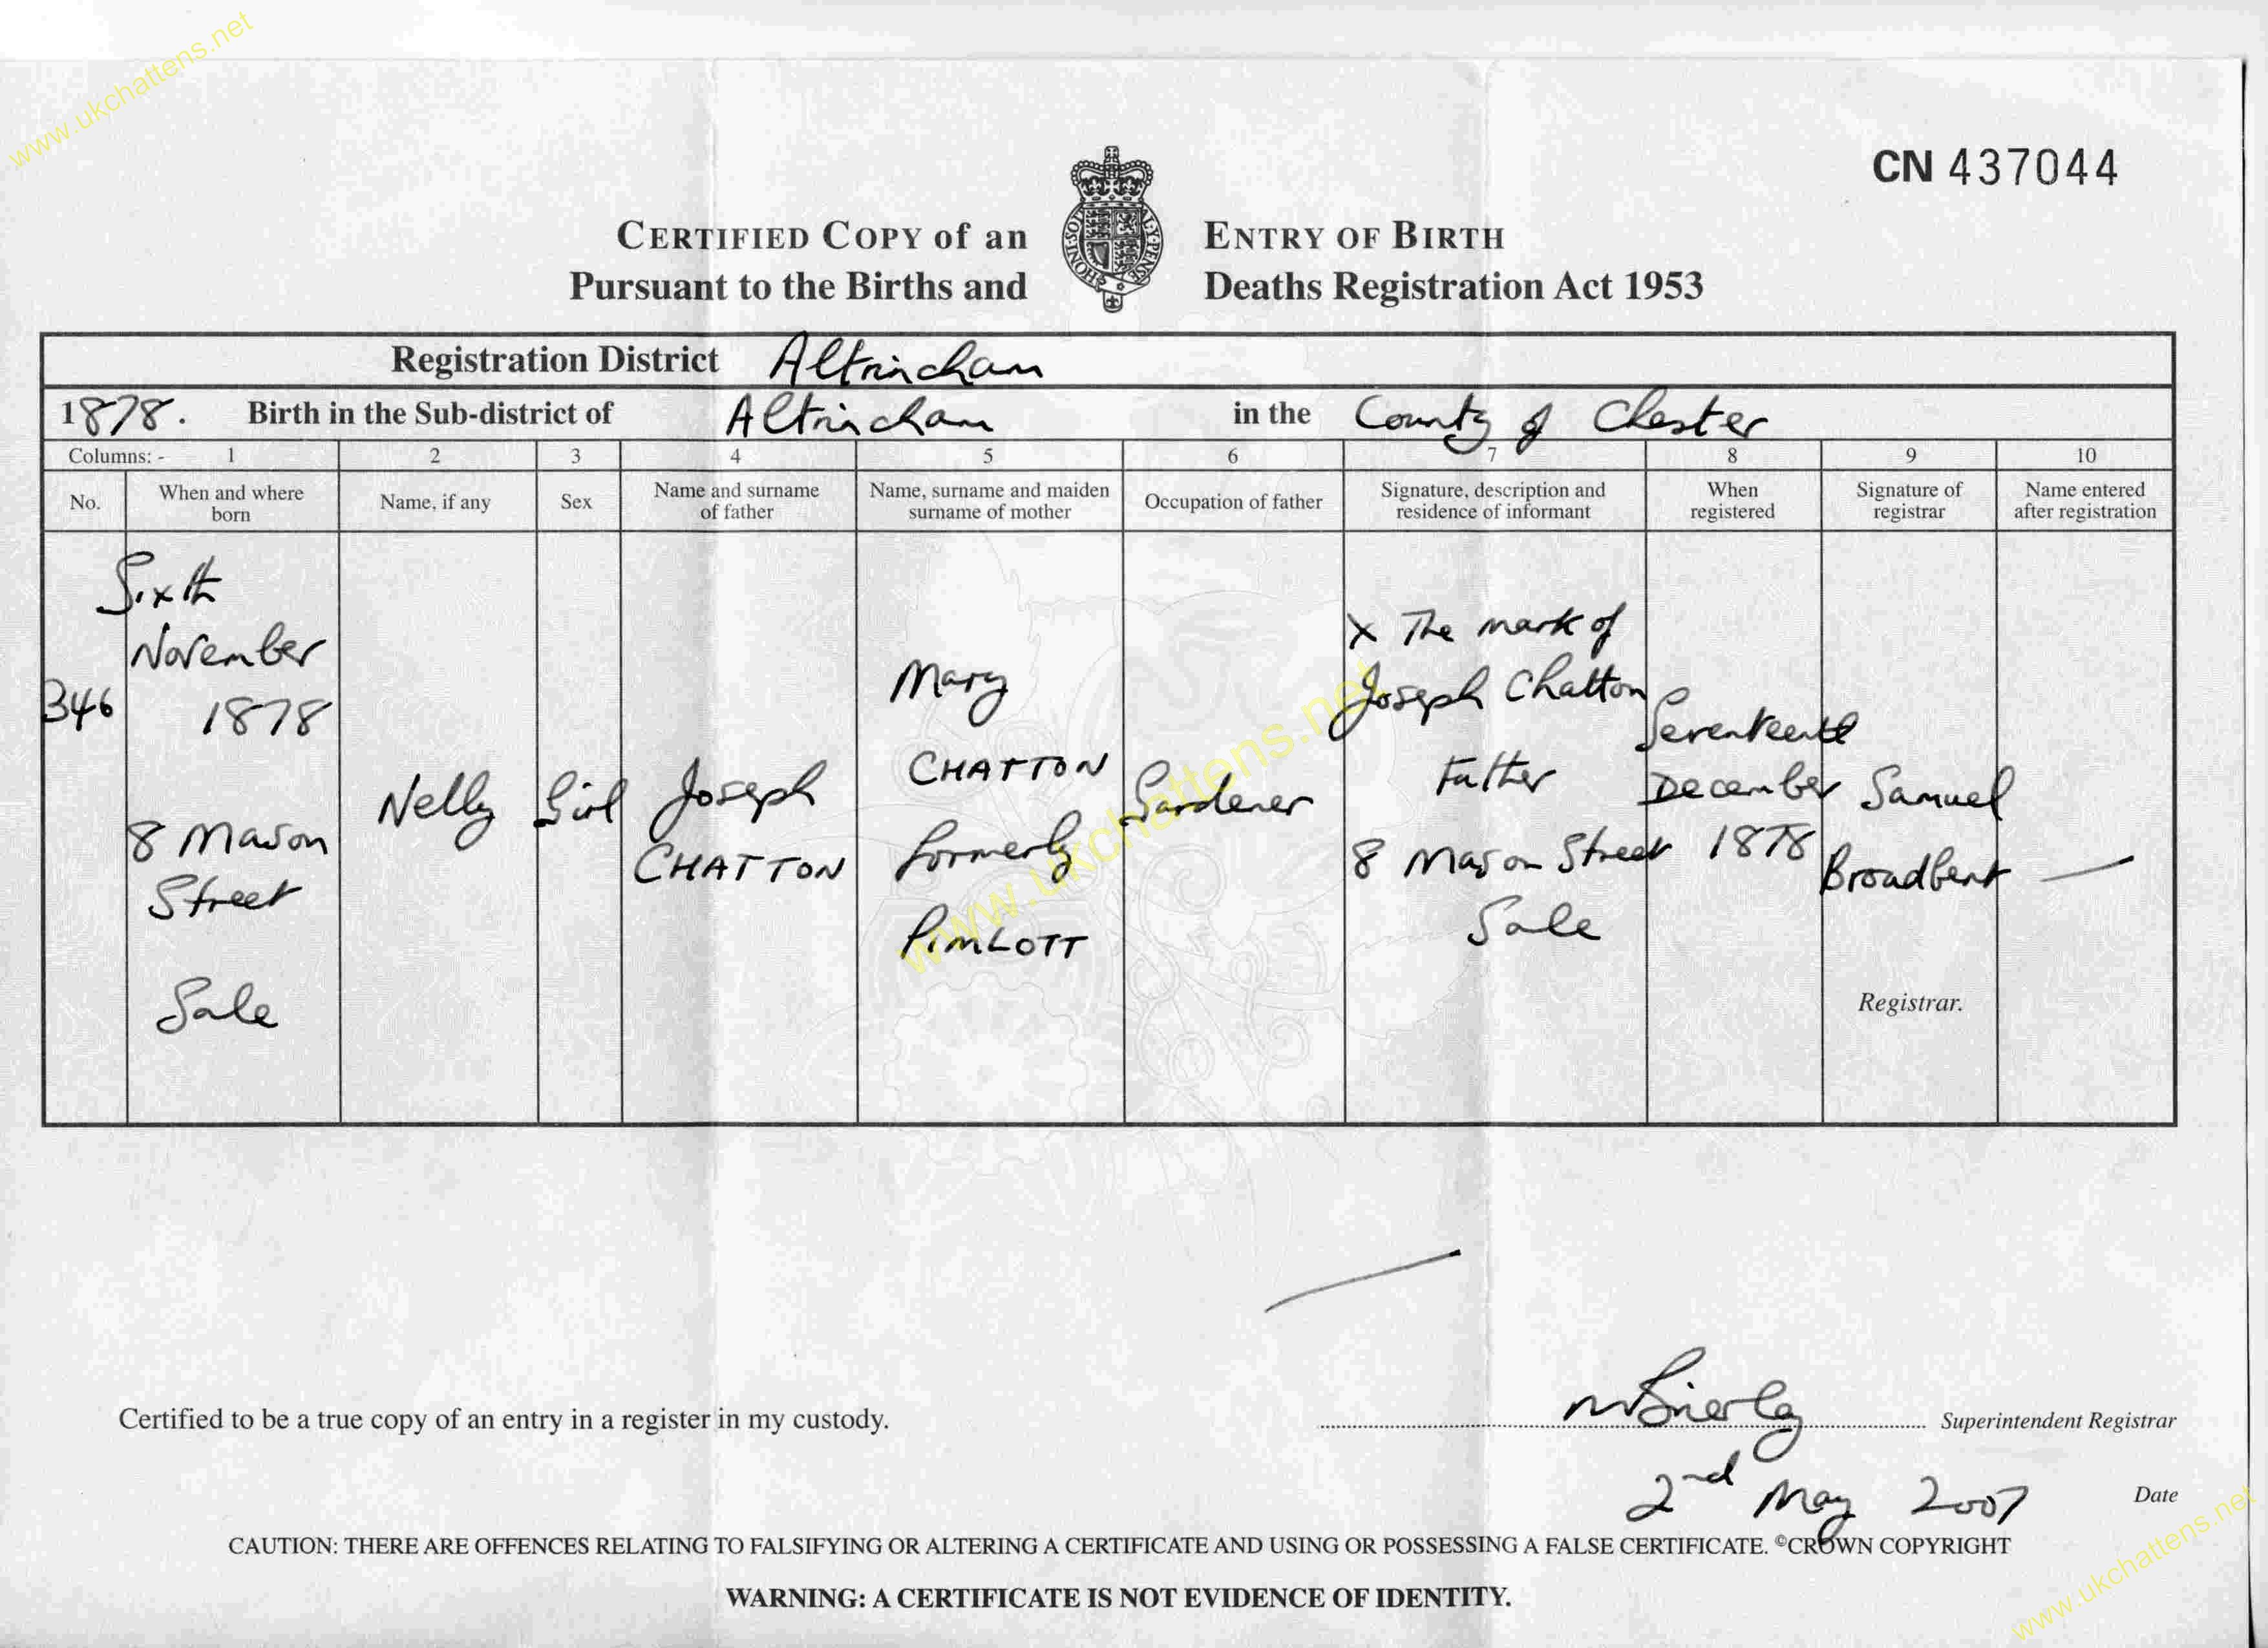 www.ukchattens.net
CN 437044
CERTIFIED COPY of an ENTRY OF BIRTH
Pursuant to the Births and Deaths Registration Act 1953
HONI·SOIT AL·Y·PENSE
Registration District Altrincham
1878. Birth in the Sub-district of Altrincham in the County of Chester
Columns: - 1 2 3 4 5 6 7 8 9 10
No.
When and where
born
Name, if any
Sex
Name and surname
of father
Name, surname and maiden
surname of mother
Occupation of father
Signature, description and
residence of informant
When
registered
Signature of
registrar
Name entered
after registration
346
Sixth
November
1878
8 Mason
Street
Sale
Nelly
Girl
Joseph
CHATTON
Mary
CHATTON
formerly
PIMLOTT
Gardener
X The mark of
Joseph Chatton
Father
8 Mason Street
Sale
Seventeenth
December
1878
Samuel
Broadbent
Registrar.
—
www.ukchattens.net
Certified to be a true copy of an entry in a register in my custody.
Superintendent Registrar
2nd May 2007 Date
CAUTION: THERE ARE OFFENCES RELATING TO FALSIFYING OR ALTERING A CERTIFICATE AND USING OR POSSESSING A FALSE CERTIFICATE. ©CROWN COPYRIGHT
WARNING: A CERTIFICATE IS NOT EVIDENCE OF IDENTITY.
www.ukchattens.net